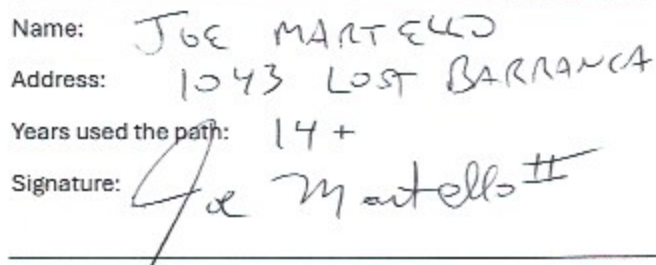 Name: JOE MARTELLO
Address: 1043 LOST BARRANCA
Years used the path: 14 +
Signature: Joe Martello II